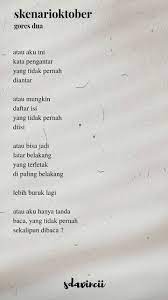 skenarioktober
gores dua
atau aku ini
kata pengantar
yang tidak pernah
diantar
atau mungkin
daftar isi
yang tidak pernah
diisi
atau bisa jadi
latar belakang
yang terletak
di paling belakang
lebih buruk lagi
atau aku hanya tanda
baca, yang tidak pernah
sekalipun dibaca ?
sdavincii